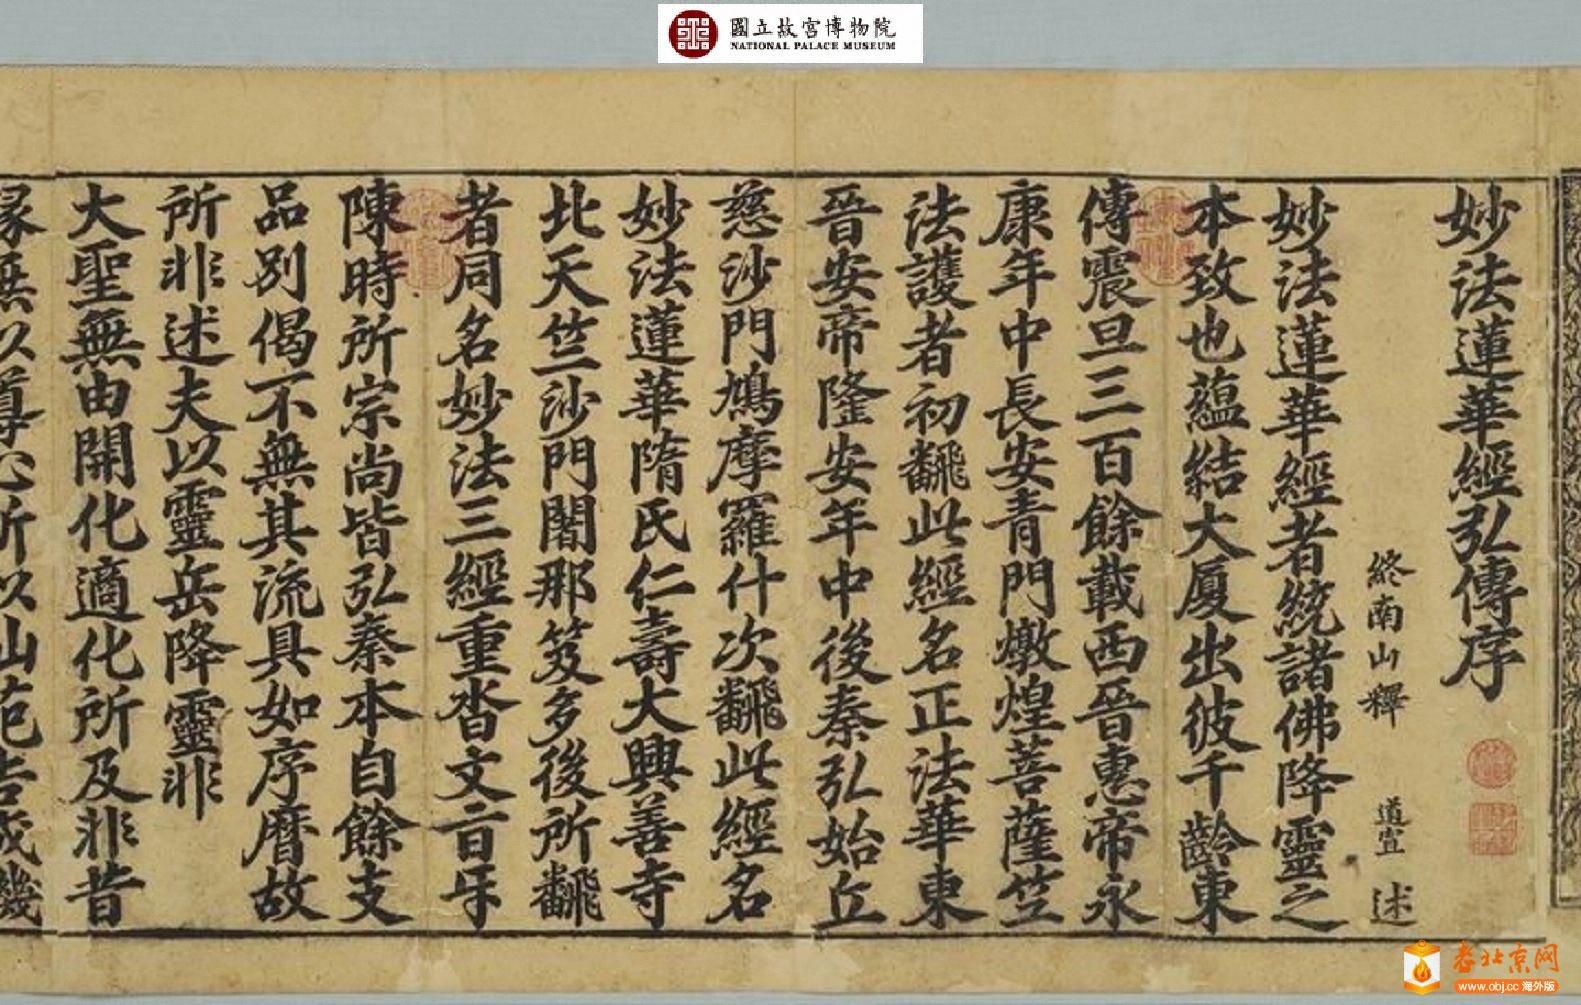 國立故宮博物院
NATIONAL PALACE MUSEUM
妙法蓮華經弘傳序
終南山釋 道宣 述
妙法蓮華經者統諸佛降靈之
本致也蘊結大厦出彼千齡東
傳震旦三百餘載西晉惠帝永
康年中長安青門燉煌菩薩竺
法護者初飜此經名正法華東
晉安帝隆安年中後秦弘始丘
慈沙門鳩摩羅什次飜此經名
妙法蓮華隋氏仁壽大興善寺
北天竺沙門闍那笈多後所飜
者同名妙法三經重沓文旨互
陳時所宗尚皆弘秦本自餘支
品別偈不無其流具如序曆故
所非述夫以靈岳降靈非
大聖無由開化適化所及非昔
緣無以導心所以仙苑告成機
老北京网
www.obj.cc 海外版